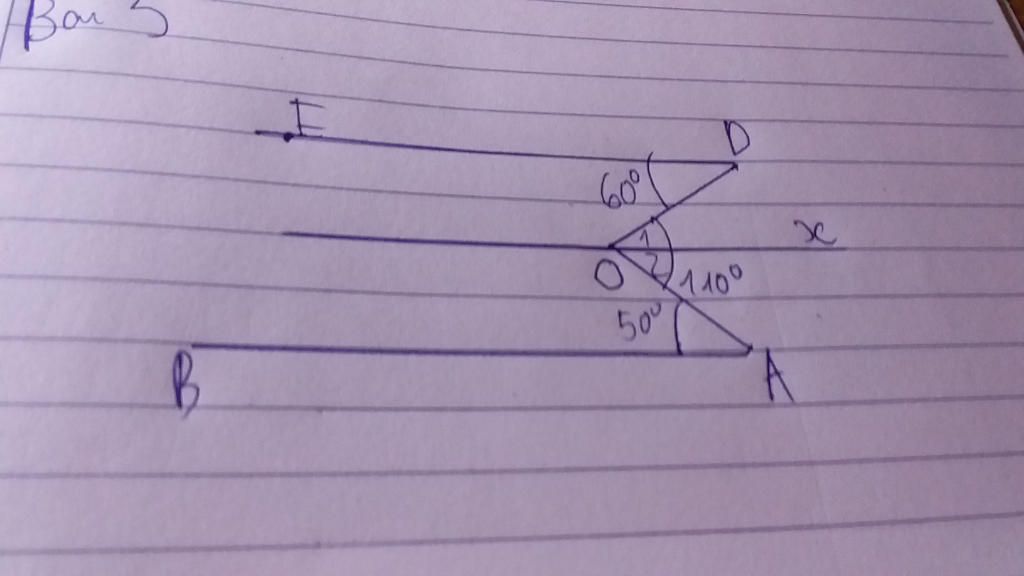 Bài 5
E
D
60°
x
1
2
O
110°
50°
B
A